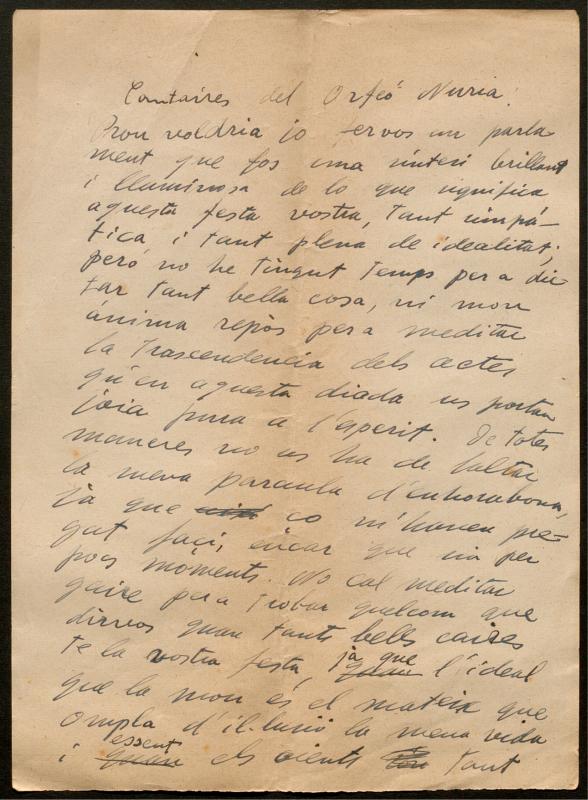 Cantaires del Orfeó Nuria:
Prou voldria jo fervos un parla
ment que fos una sintesi brillant
i lluminosa de lo que significa
aquesta festa vostra, tant simpá-
tica i tant plena de idealitat;
peró no he tingut temps pera dic
tar tant bella cosa, ni mon
ánima repós pera meditar
la trascendencia dels actes
qu'en aquesta diada us portan
joia pura a l'esperit. De totes
maneres no us ha de faltar
la meva paraula d'enhorabona,
ja que co m'haveu pre-
gat faci, encar que sia per
pocs moments. No cal meditar
gaire pera trobar quelcom que
dirvos quan tants bells caires
te la vostra festa, ja que l'ideal
que la mou es el mateix que
ompla d'il-lusió la meva vida
i essent els oients tant